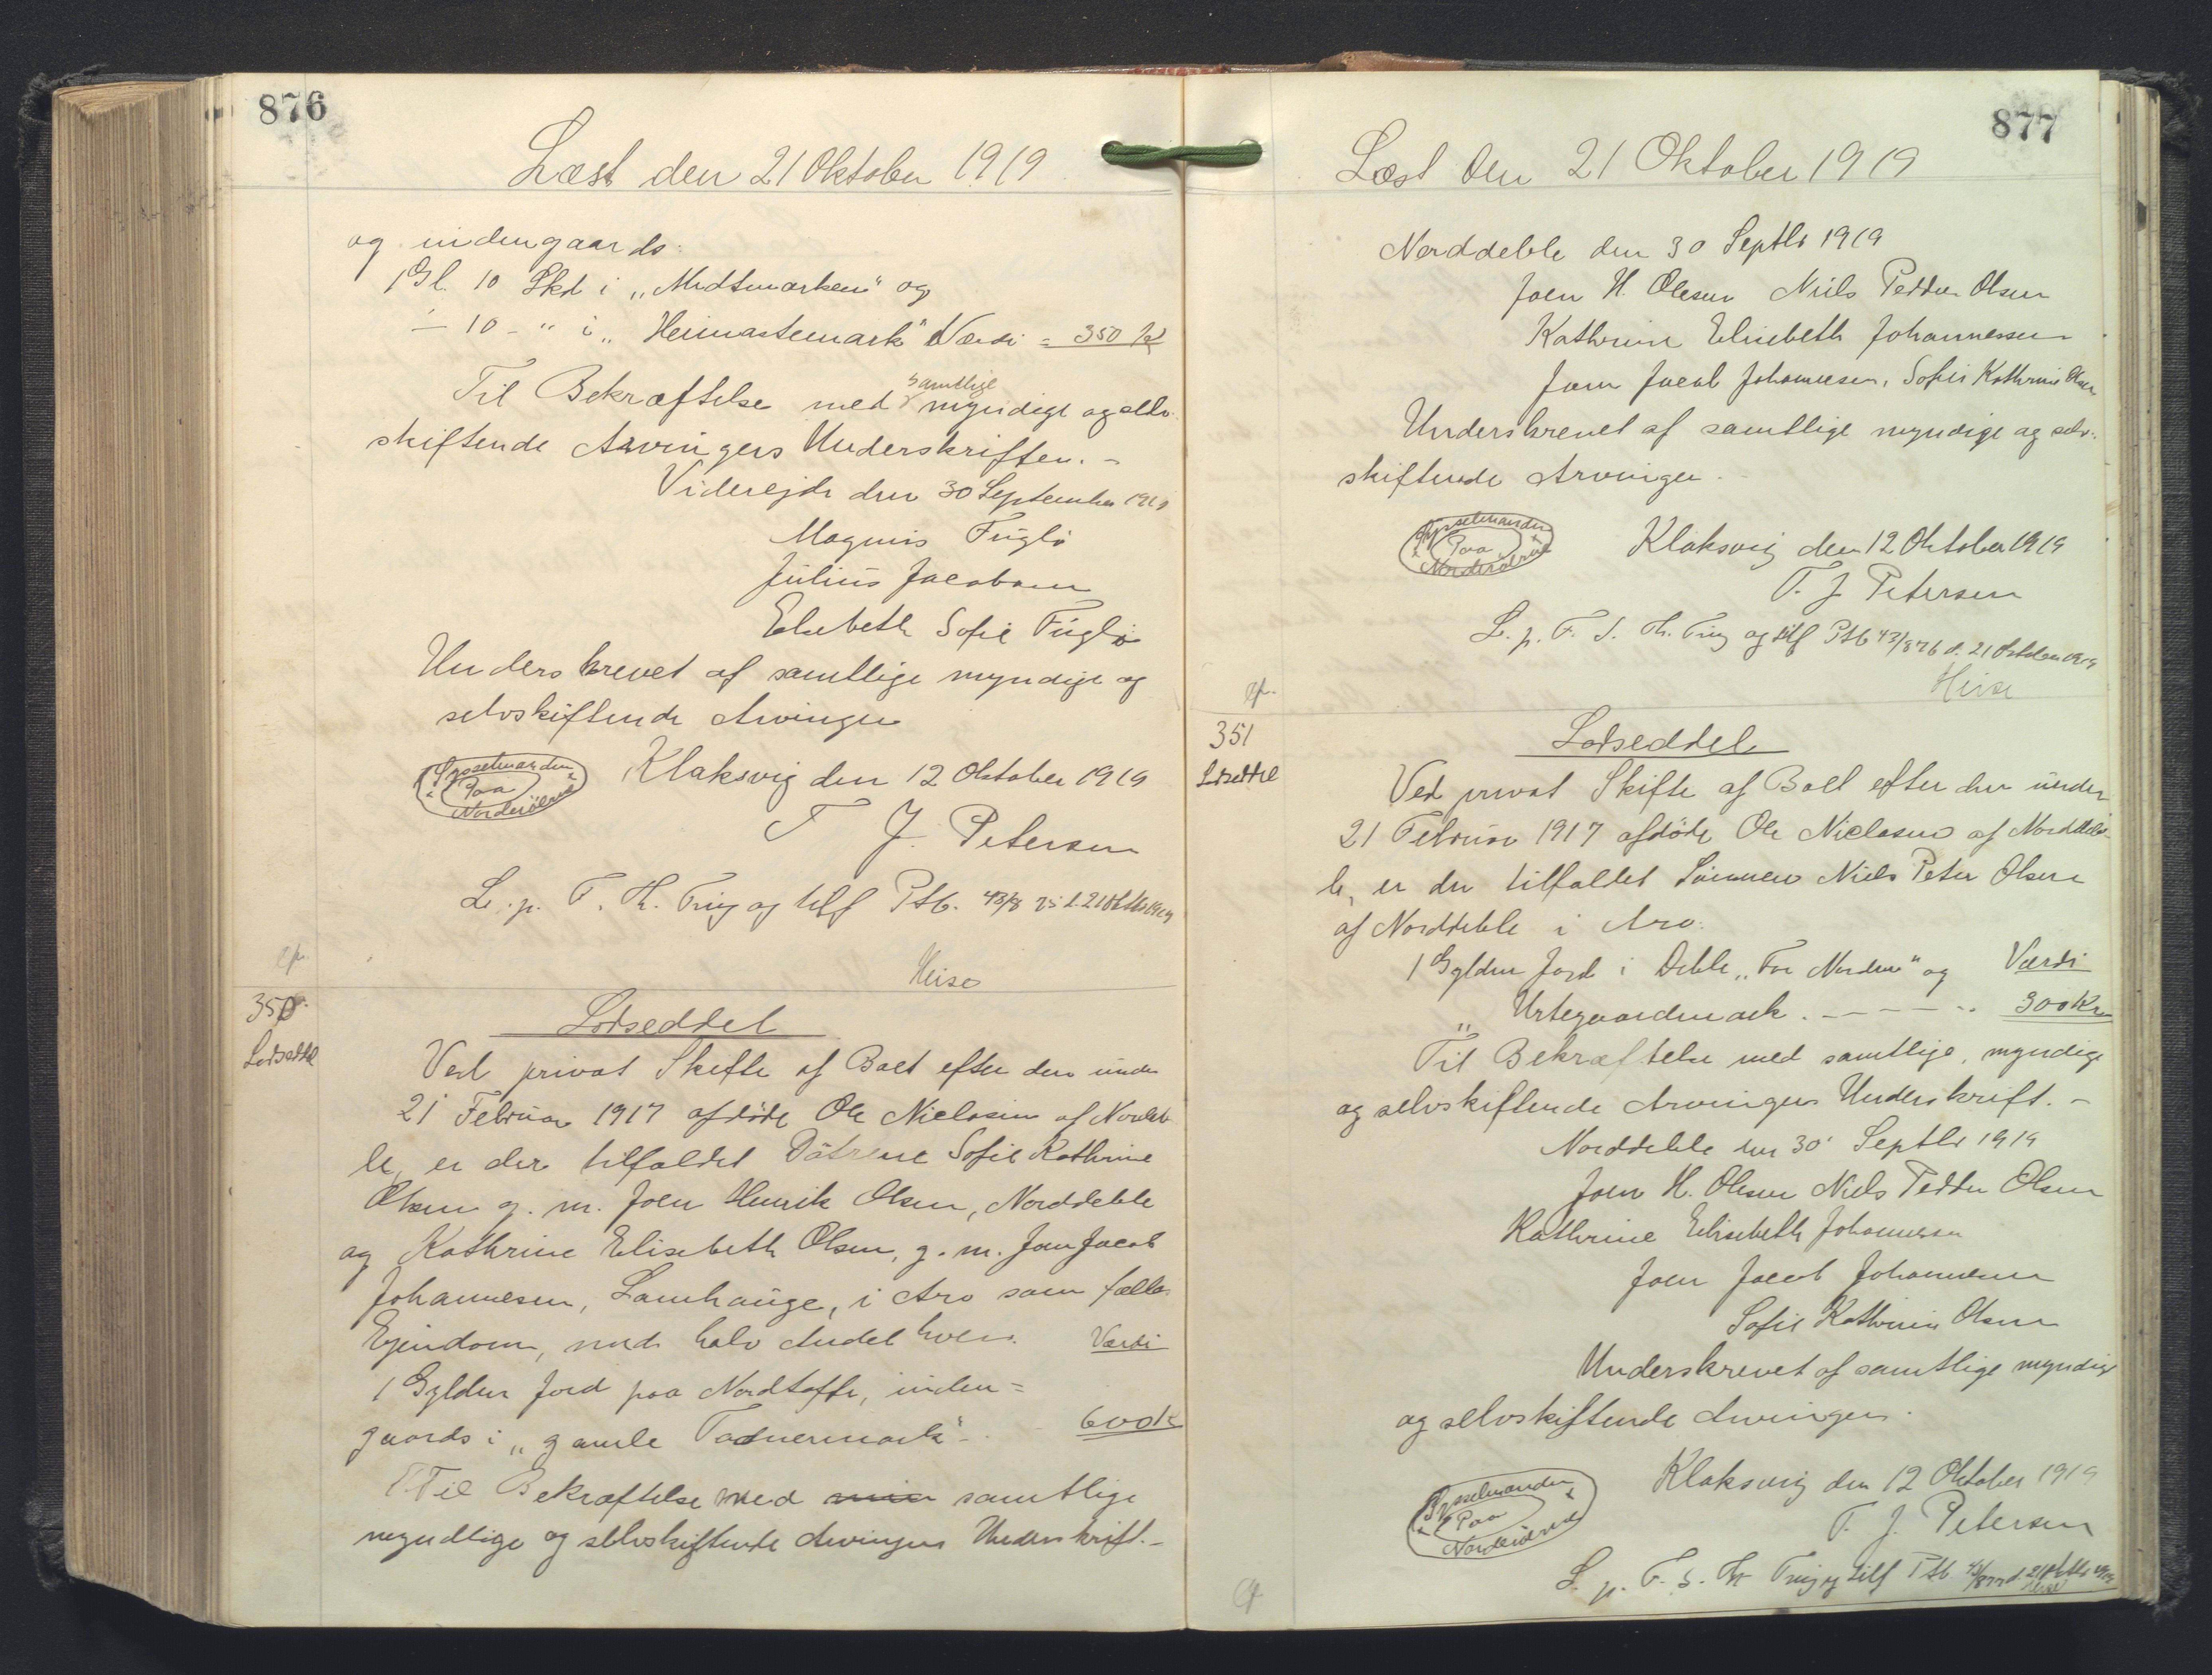 876
Læst den 21 Oktober 1919
og indengaards:
1 Gl. 10 Skd i „Midtmarken" og
— 10 - " i „Heimastemark" Værdi = 350 Kr
Til Bekræftelse med samtlige myndige og selv-
skiftende Arvingers Underskrifter. -
Viderejde den 30 September 1919
Magnus Fuglö
Julius Jacobsen
Elsebeth Sofie Fuglö
Underskrevet af samtlige myndige og
selvskiftende Arvinger
Sysselmanden Paa Norderöerne
Klaksvig den 12 Oktober 1919
T J. Petersen
L. p. F. Th. Ting og tilf Ptb. 43/875 d. 21 Oktbr 1919
Heise
350.
Lodseddel
Lodseddel
Ved privat Skifte af Boet efter den under
21 Februar 1917 afdöde Ole Niclasen af Norddeb-
le, er der tilfaldet Döttrene Sofie Kathrine
Olsen g. m. Joen Henrik Olsen, Norddeble
og Kathrine Elisebeth Olsen, g. m. Joen Jacob
Johannesen, Lamhauge, i Arv som fælles
Ejendom, med halv Andel hver. Værdi
1 Gylden Jord paa Nordtofte, inden=
gaards i „gamle Todnermark" - 600 Kr
Til Bekræftelse med samtlige
myndige og selvskiftende Arvingers Underskrift. -
877
Læst den 21 Oktober 1919
Norddeble den 30 Septbr 1919
Joen H. Olesen Niels Petter Olsen
Kathrine Elisebeth Johannessen
Joen Jacob Johannesen, Sofie Kathrine Olsen
Underskrevet af samtlige myndige og selv-
skiftende Arvinger.
Sysselmanden Paa Norderöerne
Klaksvig den 12 Oktober 1919
T. J. Petersen
L. p. F. S. Th. Ting og tilf Ptb 43/876 d. 21 Oktober 1919
Heise
351
Lodseddel
Lodseddel
Ved privat Skifte af Boet efter den under
21 Februar 1917 afdöde Ole Niclasen af Norddeb-
le, er der tilfaldet Sönnen Niels Peter Olsen
af Norddeble i Arv:
1 Gylden Jord i Deble „For Norden" og Værdi
„ Urtegaardmark. - - - - - 300 Kr
Til Bekræftelse med samtlige, myndige
og selvskiftende Arvingers Underskrift. -
Norddeble den 30' Septbr 1919
Joen H. Olesen Niels Petter Olsen
Kathrine Elisebeth Johannesen
Joen Jacob Johannesen
Sofie Kathrine Olsen
Underskrevet af samtlige myndige
og selvskiftende Arvinger.
Sysselmanden Paa Norderöerne
Klaksvig den 12 Oktober 1919
T. J. Petersen
L. p. F. S. Th Ting og tilf Ptb 43/877 d. 21 Oktbr 1919
Heise